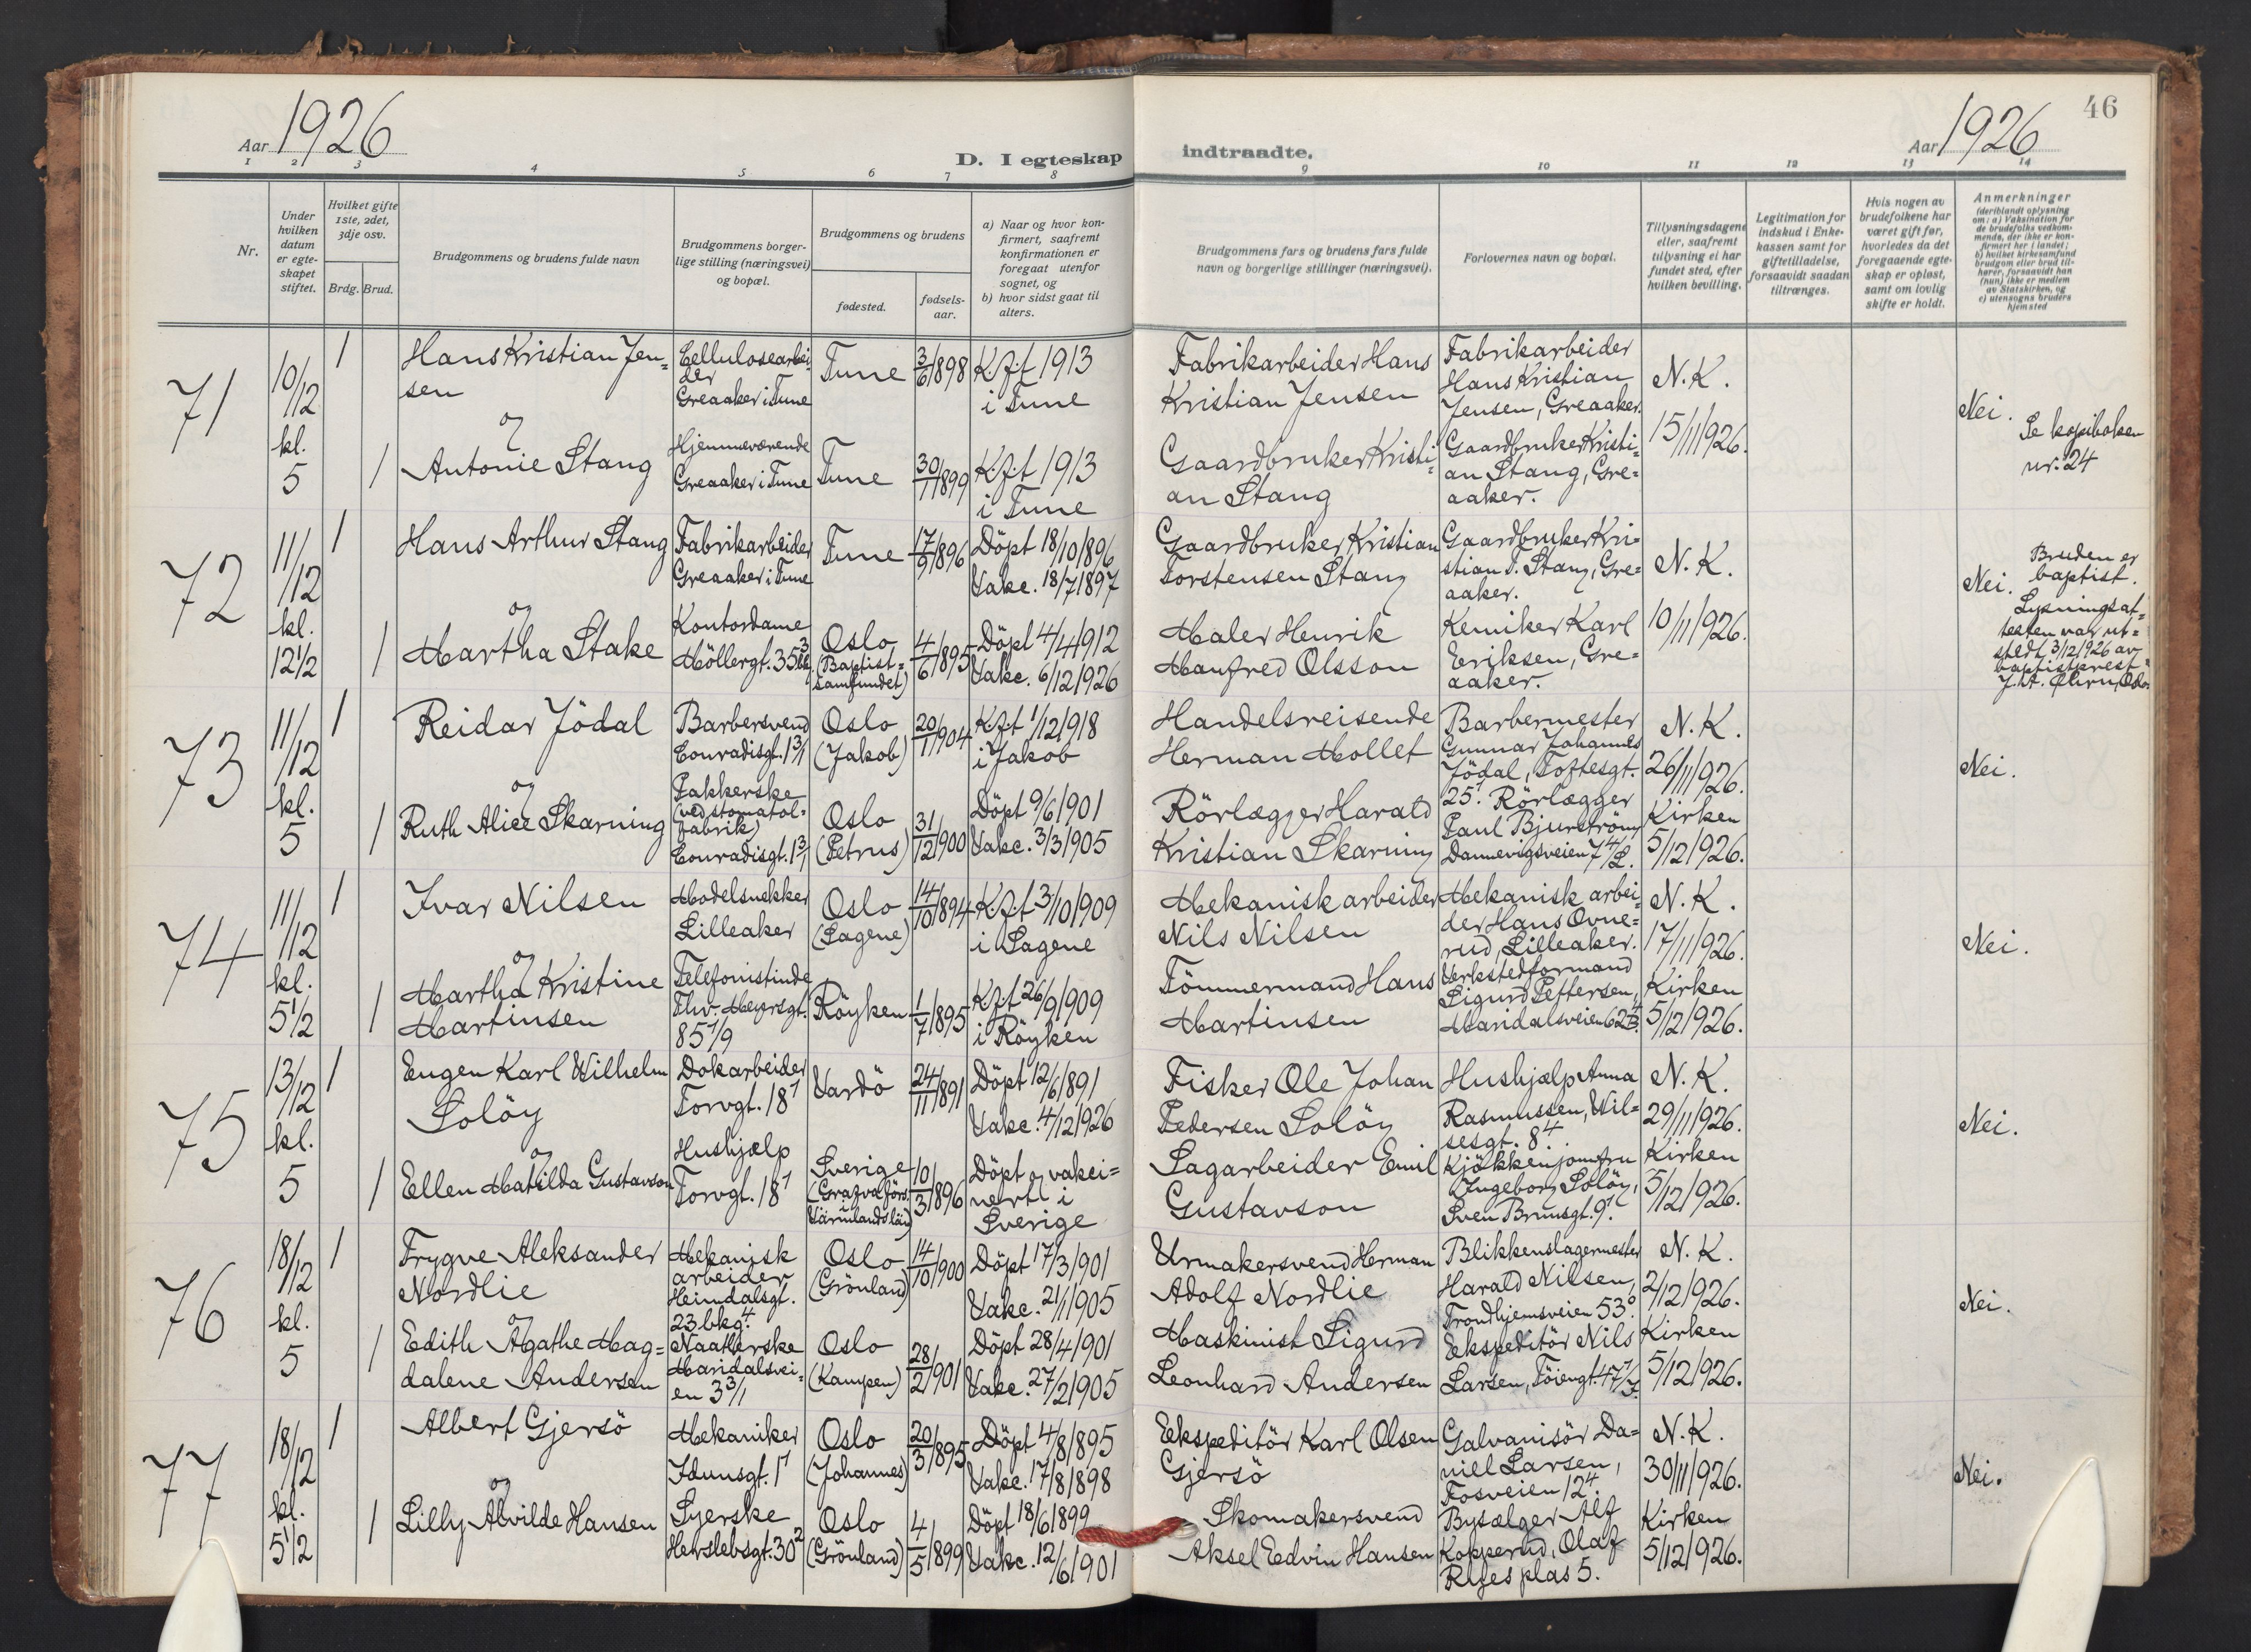 Aar 1926
D. I egteskap indtraadte.
Aar 1926
46
1 2 3 4 5 6 7 8 9 10 11 12 13 14
Nr.
Under hvilken datum er egteskapet stiftet.
Hvilket gifte 1ste, 2det, 3dje osv.
Brdg. Brud.
Brudgommens og brudens fulde navn
Brudgommens borger-
lige stilling (næringsvei)
og bopæl.
Brudgommens og brudens
fødested.
fødsels-
aar.
a) Naar og hvor kon-
firmert, saafremt
konfirmationen er
foregaat utenfor
sognet, og
b) hvor sidst gaat til
alters.
Brudgommens fars og brudens fars fulde
navn og borgerlige stillinger (næringsvei).
Forlovernes navn og bopæl.
Tillysningsdagene
eller, saafremt
tillysning ei har
fundet sted, efter
hvilken bevilling.
Legitimation for
indskud i Enke-
kassen samt for
giftetilladelse,
forsaavidt saadan
tiltrænges.
Hvis nogen av
brudefolkene har
været gift før,
hvorledes da det
foregaaende egte-
skap er opløst,
samt om lovlig
skifte er holdt.
Anmerkninger
(deriblandt oplysning
om: a) Vaksination for
de brudefolks vedkom-
mende, der ikke er kon-
firmert her i landet;
b) hvilket kirkesamfund
brudgom eller brud til-
hører, forsaavidt han
(hun) ikke er medlem
av Statskirken, og
c) utensogns bruders
hjemsted
71
10/12
kl.
5
1
Hans Kristian Jen=
sen
Cellulosearbei=
der
Greaaker i Tune
Tune
3/6 1898
K.f.t 1913
i Tune
Fabrikarbeider Hans
Kristian Jensen
Fabrikarbeider
Hans Kristian
Jensen, Greaaker.
N.K.
15/11 1926.
Nei.
Se kopiboken
nr. 24
og
1
Antonie Stang
Hjemmeværende
Greaaker i Tune
Tune
30/1 1899
K.f.t 1913
i Tune
Gaardbruker Kristi=
an Stang
Gaardbruker Kristi=
an Stang, Gre=
aaker.
72
11/12
kl.
12 1/2
1
Hans Arthur Stang
Fabrikarbeider
Greaaker i Tune
Tune
17/9 1896
Döpt 18/10 1896
Vakc. 18/7 1897
Gaardbruker Kristian
Torstensen Stang
Gaardbruker Kri=
stian T. Stang, Gre=
aaker.
N.K.
10/11 1926.
Nei.
Bruden er
baptist.
Lysningsat=
testen var ut=
stedt 3/12 1926 av
baptistprest
og
1
Martha Stake
Kontordame
Möllergt. 35
Oslo
(Baptist=
samfundet)
4/6 1895
Döpt 4/4 1912
Vakc. 6/12 1926
Maler Henrik
Manfred Olsson
Kemiker Karl
Eriksen, Gre=
aaker.
73
11/12
kl.
5
1
Reidar Jödal
Barbersvend
Conradisgt. 1 3/1
Oslo
(Jakob)
20/1 1904
K.f.t 1/12 1918
i Jakob
Handelsreisende
Herman Mollet
Barbermester
Gunnar Johannes
Jödal, Toftesgt.
25 1.
N.K.
26/11 1926.
Kirken
5/12 1926.
Nei.
og
1
Ruth Alice Skarning
Pakkerske
(ved stomatol=
fabrik)
Conradisgt. 1 3/1
Oslo
(Petrus)
31/12 1900
Döpt 9/6 1901
Vakc. 3/3 1905
Rörlægger Harald
Kristian Skarning
Rörlægger
Paul Bjurström
Dannevigsveien 7 4/L.
74
11/12
kl.
5 1/2
1
Ivar Nilsen
Modelsnekker
Lilleaker
Oslo
(Sagene)
14/10 1894
K.f.t 3/10 1909
i Sagene
Mekanisk arbeider
Nils Nilsen
Mekanisk arbei=
der Hans Ovne=
rud, Lilleaker.
N.K.
17/11 1926.
Kirken
5/12 1926.
Nei.
og
1
Martha Kristine
Martinsen
Telefonistinde
Thv. Meyersgt.
85 1/9
Röyken
1/7 1895
K.f.t 26/9 1909
i Röyken
Tömmermand Hans
Martinsen
Verkstedformand
Sigurd Pettersen,
Maridalsveien 62
75
13/12
kl.
5
1
Eugen Karl Wilhelm
Solöy
Dokarbeider
Torvgt. 18 1
Vardö
24/11 1891
Döpt 12/6 1891
Vakc. 4/12 1926
Fisker Ole Johan
Pedersen Solöy
Hushjælp Anna
Rasmussen, Wil=
sesgt. 8 4.
N.K.
29/11 1926.
Kirken
5/12 1926.
Nei.
og
1
Ellen Matilda Gustavson
Hushjælp
Torvgt. 18 1
Sverige
(Grazva förs.
i
Värmlands län)
10/3 1896
Döpt og vakci=
nert i
Sverige
Sagarbeider Emil
Gustavson
Kjökkenjomfru
Ingeborg Solöy,
Sven Brunsgt. 9 1.
76
18/12
kl.
5
1
Trygve Aleksander
Nordlie
Mekanisk
arbeider
Heimdalsgt.
23 bkg. 4
Oslo
(Grönland)
14/10 1900
Döpt 17/3 1901
Vakc. 21/1 1905
Urmakersvend Herman
Adolf Nordlie
Blikkenslagermester
Harald Nilsen,
Trondhjemsveien 53 0.
N.K.
2/12 1926.
Kirken
5/12 1926.
Nei.
og
1
Edith Agathe Mag=
dalene Andersen
Naatlerske
Maridalsvei=
en 3 3/1
Oslo
(Kampen)
28/2 1901
Döpt 28/4 1901
Vakc. 27/2 1905
Maskinist Sigurd
Leonhard Andersen
Ekspeditör Nils
Larsen, Töiengt. 47
77
18/12
kl.
5 1/2
1
Albert Gjersö
Mekaniker
Idunsgt. 1 1
Oslo
(Johannes)
20/3 1895
Döpt 4/8 1895
Vakc. 17/8 1898
Ekspeditör Karl Olsen
Gjersö
Galvanisör Da=
niel Larsen,
Fosveien 12 4.
N.K.
30/11 1926.
Kirken
5/12 1926.
Nei.
og
1
Lilly Alvilde Hansen
Syerske
Herslebsgt. 30 2
Oslo
(Grönland)
4/5 1899
Döpt 18/6 1899
Vakc. 12/6 1901
Skomakersvend
Aksel Edvin Hansen
Bysælger Alf
Kopperud, Olaf
Ryes plas 5.